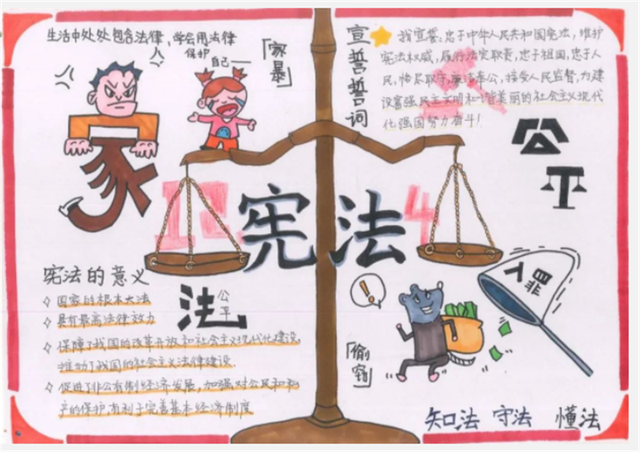 生活中处处包含法律,学会用法律
保护
自己——
「家暴」
宣誓誓词
我宣誓:忠于中华人民共和国宪法,维护
宪法权威,履行法定职责,忠于祖国,忠于人
民,恪尽职守,廉洁奉公,接受人民监督,为建
设富强民主文明和谐美丽的社会主义现代
化强国努力奋斗!
家
公
正
宪法
法
公平
宪法的意义
国家的根本大法
具有最高法律效力
保障了我国的改革开放和社会主义现代化建设
推动了我国的社会主义法律建设
促进了非公有制经济发展,加强对公民和私
产的保护,有利于完善基本经济制度
「偷窃」
知法 守法 懂法